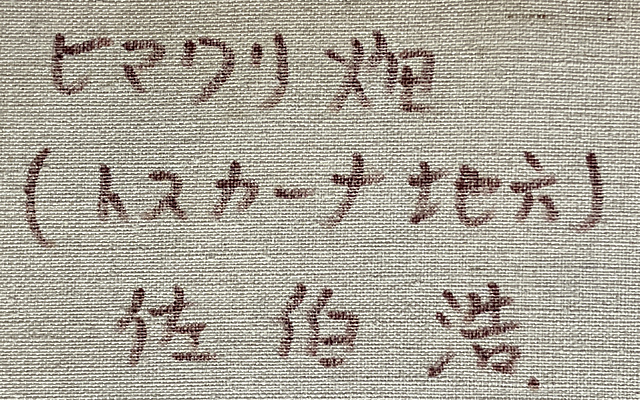 ヒマワリ畑
(トスカーナ地方)
佐伯 浩.